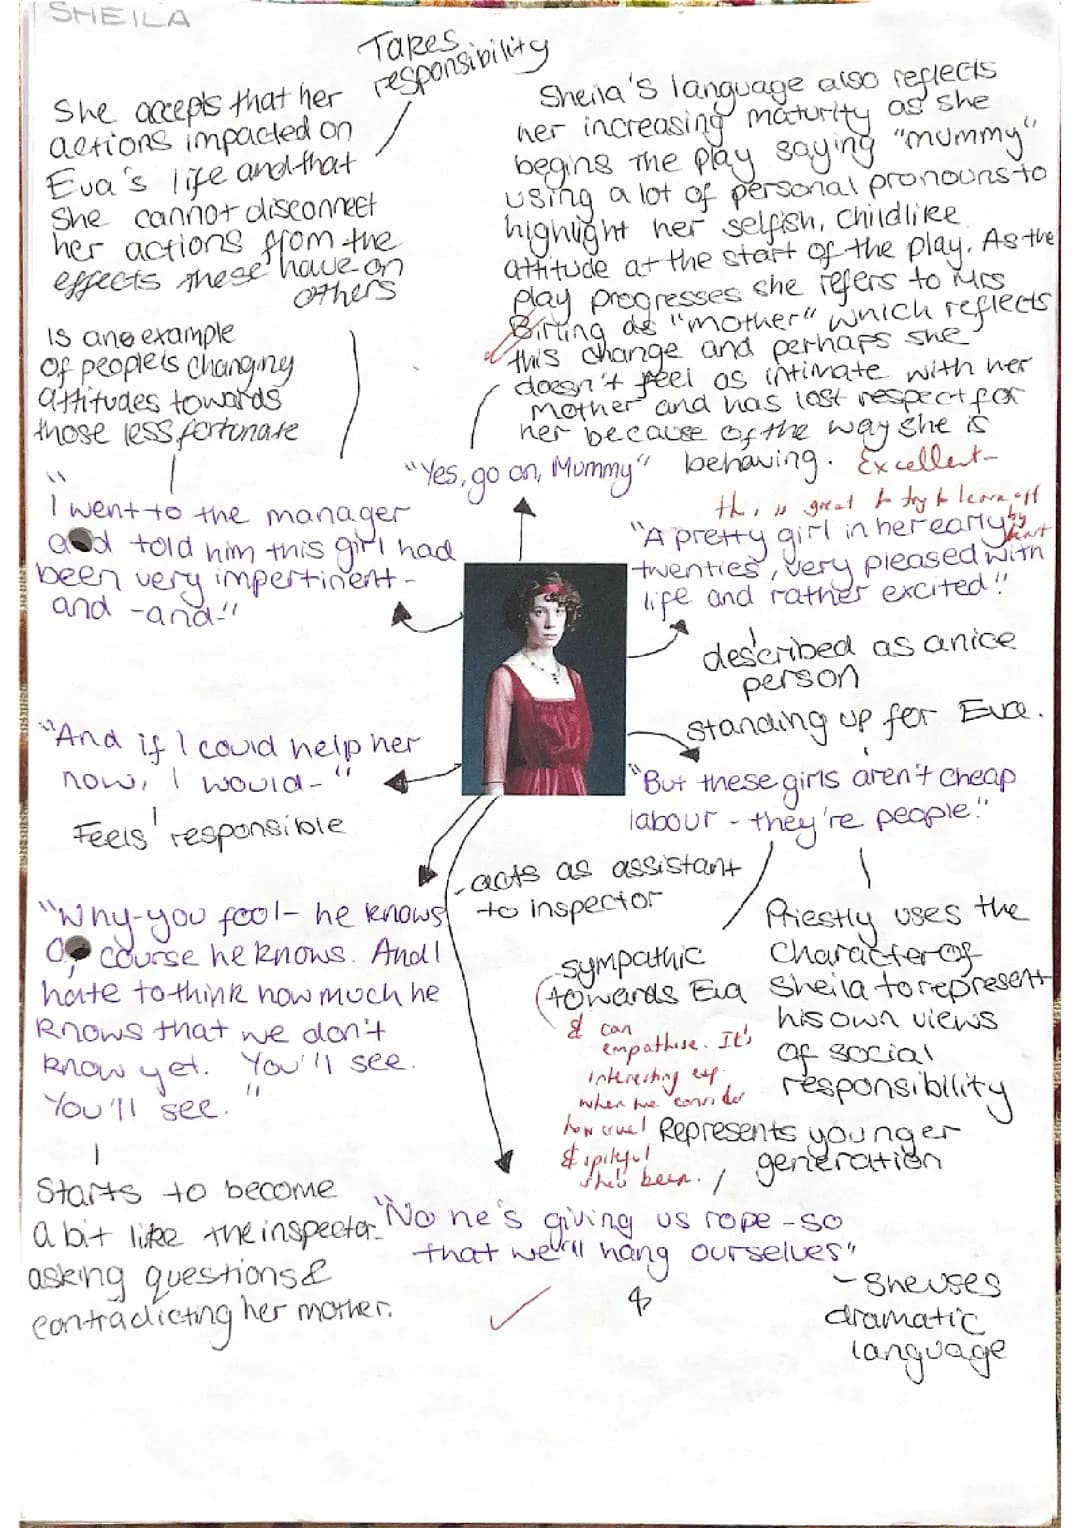 SHEILA
Takes
responsibility
She accepts that her
actions impacted on
Eva's life and that
She cannot disconnect
her actions from the
effects these have on
others
Sheila's language also reflects
her increasing maturity as she
begins the play saying "mummy"
using a lot of personal pronouns to
highlight her selfish, childlike
attitude at the start of the play. As the
play progresses she refers to Mrs
Birling as "mother" which reflects
this change and perhaps she
doesn't feel as intimate with her
mother and has lost respect for
her because of the way she is
behaving.
Excellent-
this is great to try to learn off
by heart
is one example
of people's changing
attitudes towards
those less fortunate
"Yes, go on, Mummy"
"
I went to the manager
and told him this girl had
been very impertinent -
and -and-"
"A pretty girl in her early
twenties, very pleased with
life and rather excited."
described as a nice
person
standing up for Eva.
"And if I could help her
now, I would-"
Feels responsible
"But these girls aren't cheap
labour - they're people."
-acts as assistant
to inspector
"Why-you fool- he knows
Of course he knows. And I
hate to think how much he
knows that we don't
know yet. You'll see.
You'll see."
sympathic
towards Eva
& can
empathise. It's
interesting esp.
when we consider
how cruel
& spiteful
she's been.
Priestly uses the
Character of
Sheila to represent
his own views
of social
responsibility
Represents younger
generation
Starts to become
a bit like the inspector
asking questions &
contradicting her mother.
"No he's giving us rope -so
that we'll hang ourselves"
- She uses
dramatic
language